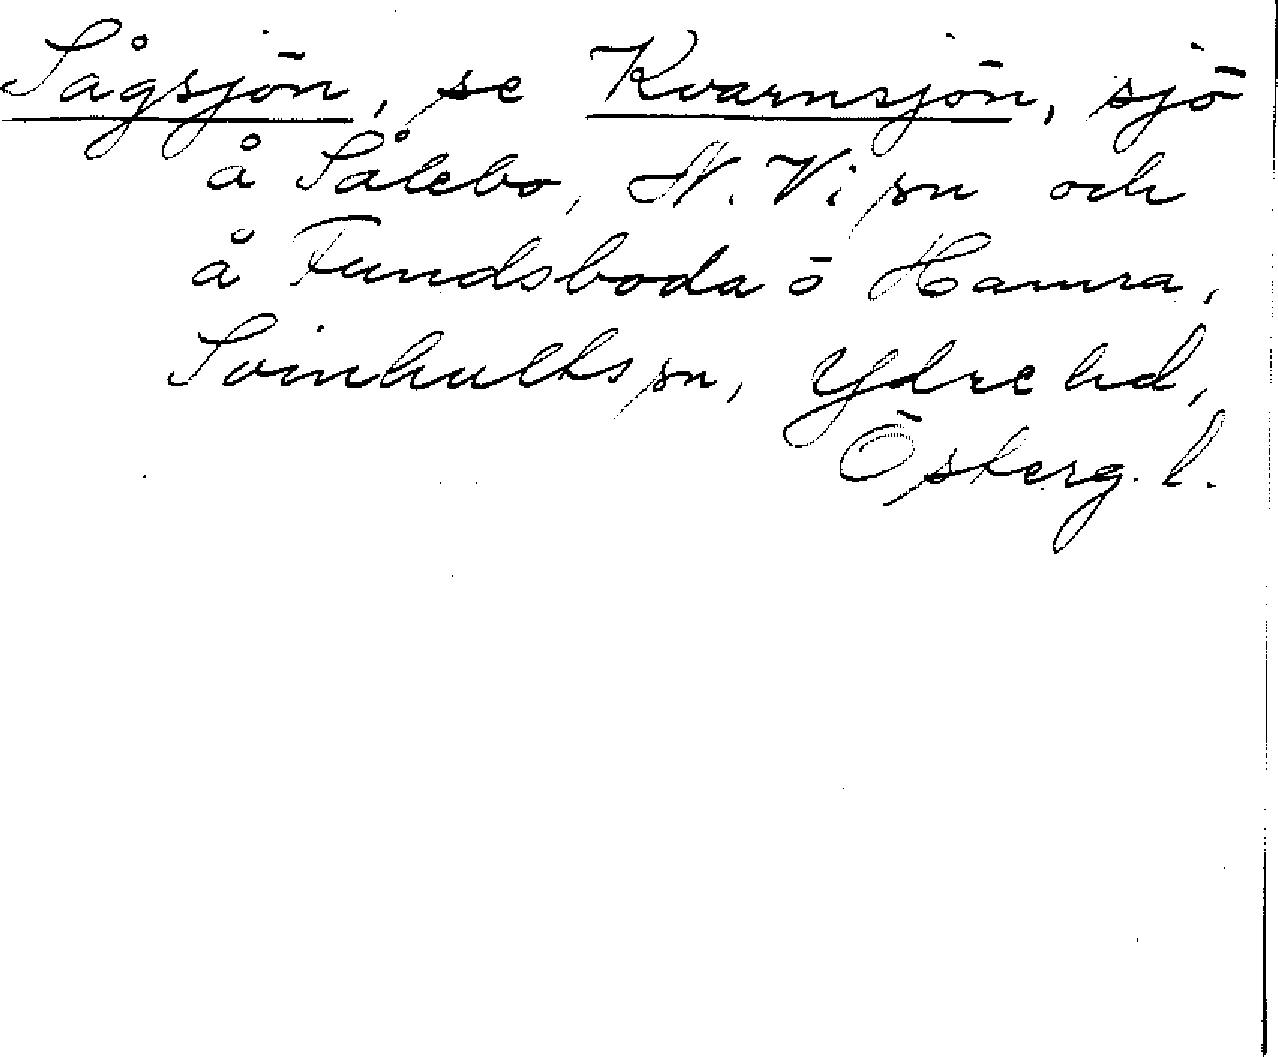 Sågsjön, se Kvarnsjön, sjö
å Sålebo, N. Vi sn och
å Fundsboda o Hamra,
Svinhults sn, Ydre hd,
Österg. l.